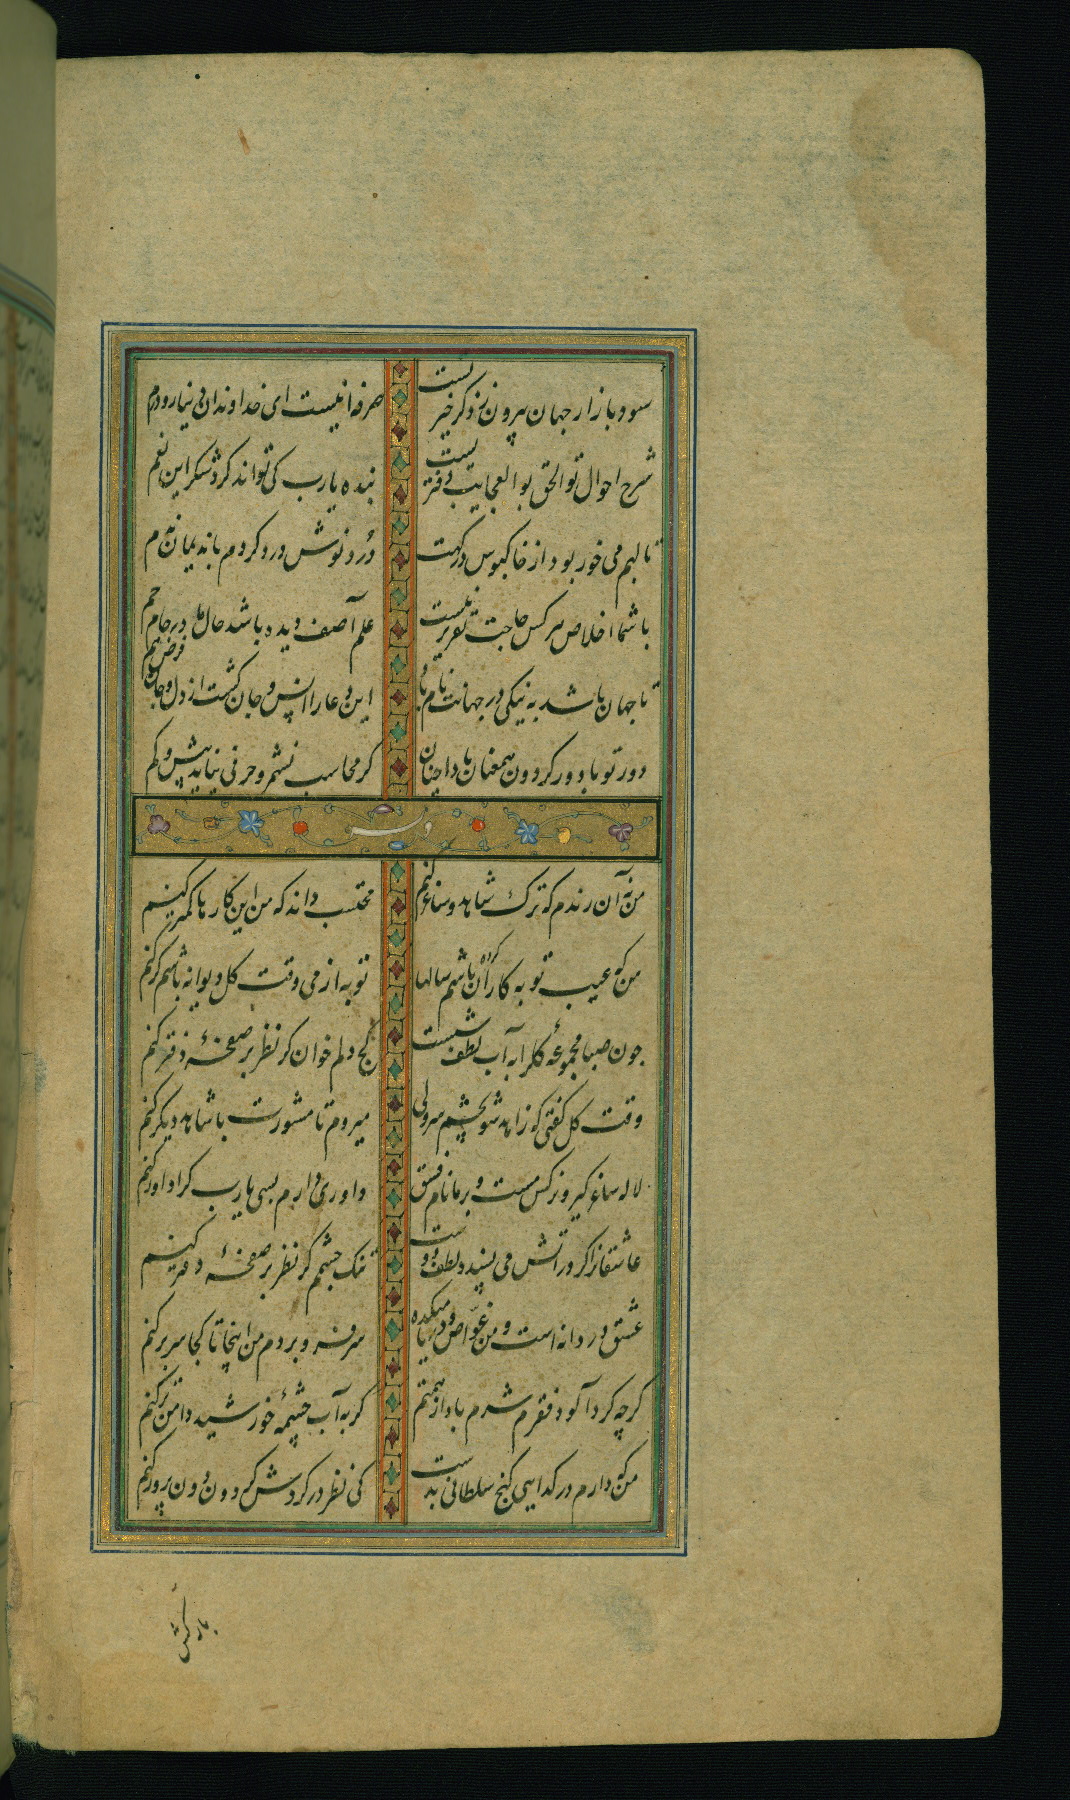 سود بازار جهان بیرون ز ذکر خیر نیست صرفه انیست ای خداوندان
شرح احوال تو الحق بوالعجایب دفتریست بنده یارب کی تواند کرد شکر این نعم
تا لبم می خور بود از خاکبوس درکهت دُرد نوش درد کردم
با شما اخلاص هرکس حاجت تقریر نیست علم آصف دیده باشد حال ما در جام جم
تا جهان باشد به نیکی در جهانت نام باد این دعا را انس و جان کشت از دل و جان فرض هم
دور تو با دور کردون همعنان بادا چنان کز محاسب نشمرد حرفی نیاید بیش و کم
وله
من نه آن رندم که ترک شاهد و ساغر کنم محتسب داند که من این کارها کمتر کنم
من که عیب توبه کاران کرده باشم سالها توبه از می وقت کل دیوانه باشم کر کنم
چون صبا مجموعهٔ کلرا به آب لطف شست کج دلم خوان کر نظر بر صفحهٔ دفتر کنم
وقت کل کفتی که زاهد شو بچشم و سر ولی میروم تا مشورت با شاهد دیکر کنم
لاله ساغر کیر و نرکس مست و بر ما نام فسق داوری دارم بسی یارب کرا داور کنم
عاشقانرا کر در آتش می پسندد لطف دوست تنک چشمم کر نظر بر صفحهٔ دفتر کنم
عشق دردانه است و من غوّاص و دریا میکده سر فرو بردم من اینجا تا کجا سر بر کنم
کرچه کرد آلود فقرم شرم باد از همتم کر به آب چشمهٔ خورشید دامن تر کنم
من که دارم در کدایی کنج سلطانی بدست کی نظر در کردش کردون دون پرور کنم